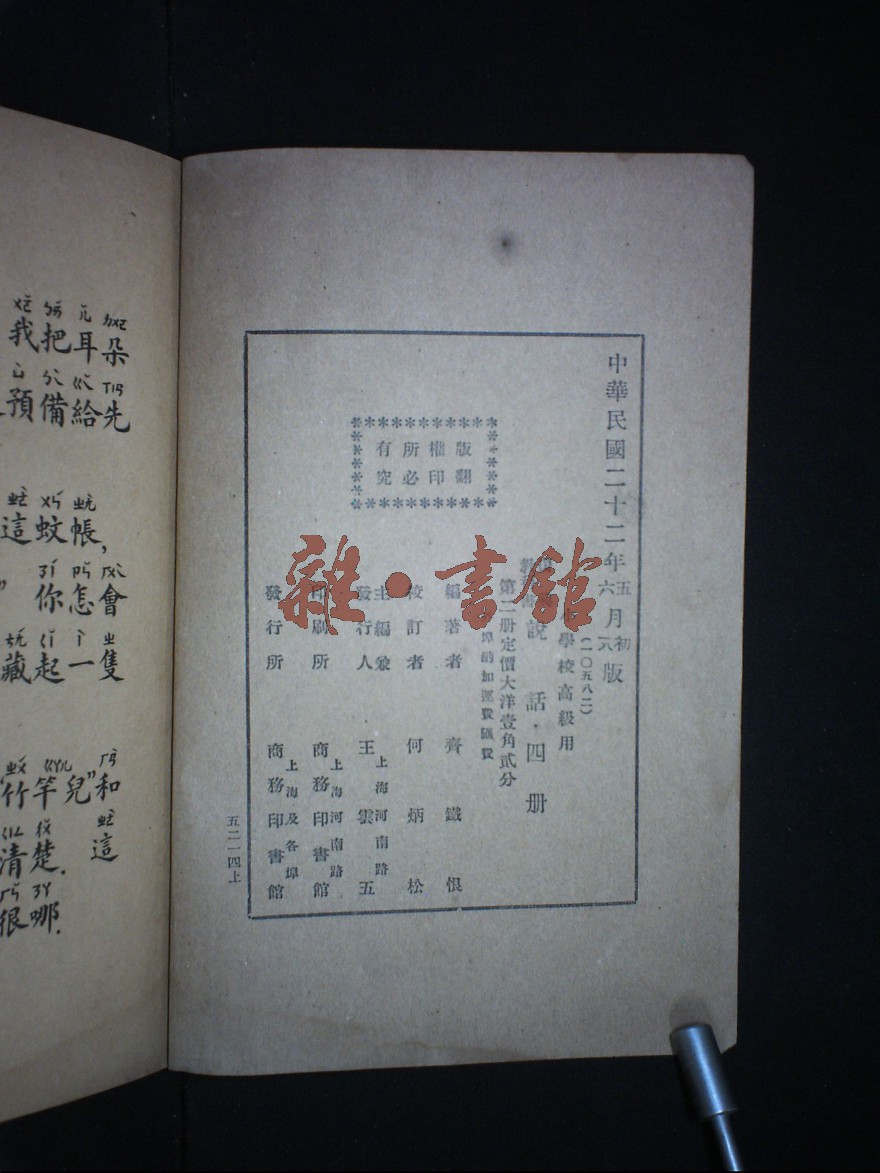 中華民國二十二年五六月初八版
(一〇五八二)
小學校高級用
教科書
說話·四册
第二册定價大洋壹角貳分
埠酌加運費匯費
編著者 齊鐵恨
校訂者 何炳松
主編兼發行人 王雲五
上海河南路
印刷所 商務印書館
上海河南路
發行所 商務印書館
上海及各埠
版權所有
翻印必究
五二一四上
雜·書館
朵先
耳給
把備
我預
帳,
蚊你起
這
會隻
怎一
藏
和這
兒”
竿楚.哪.
竹清很